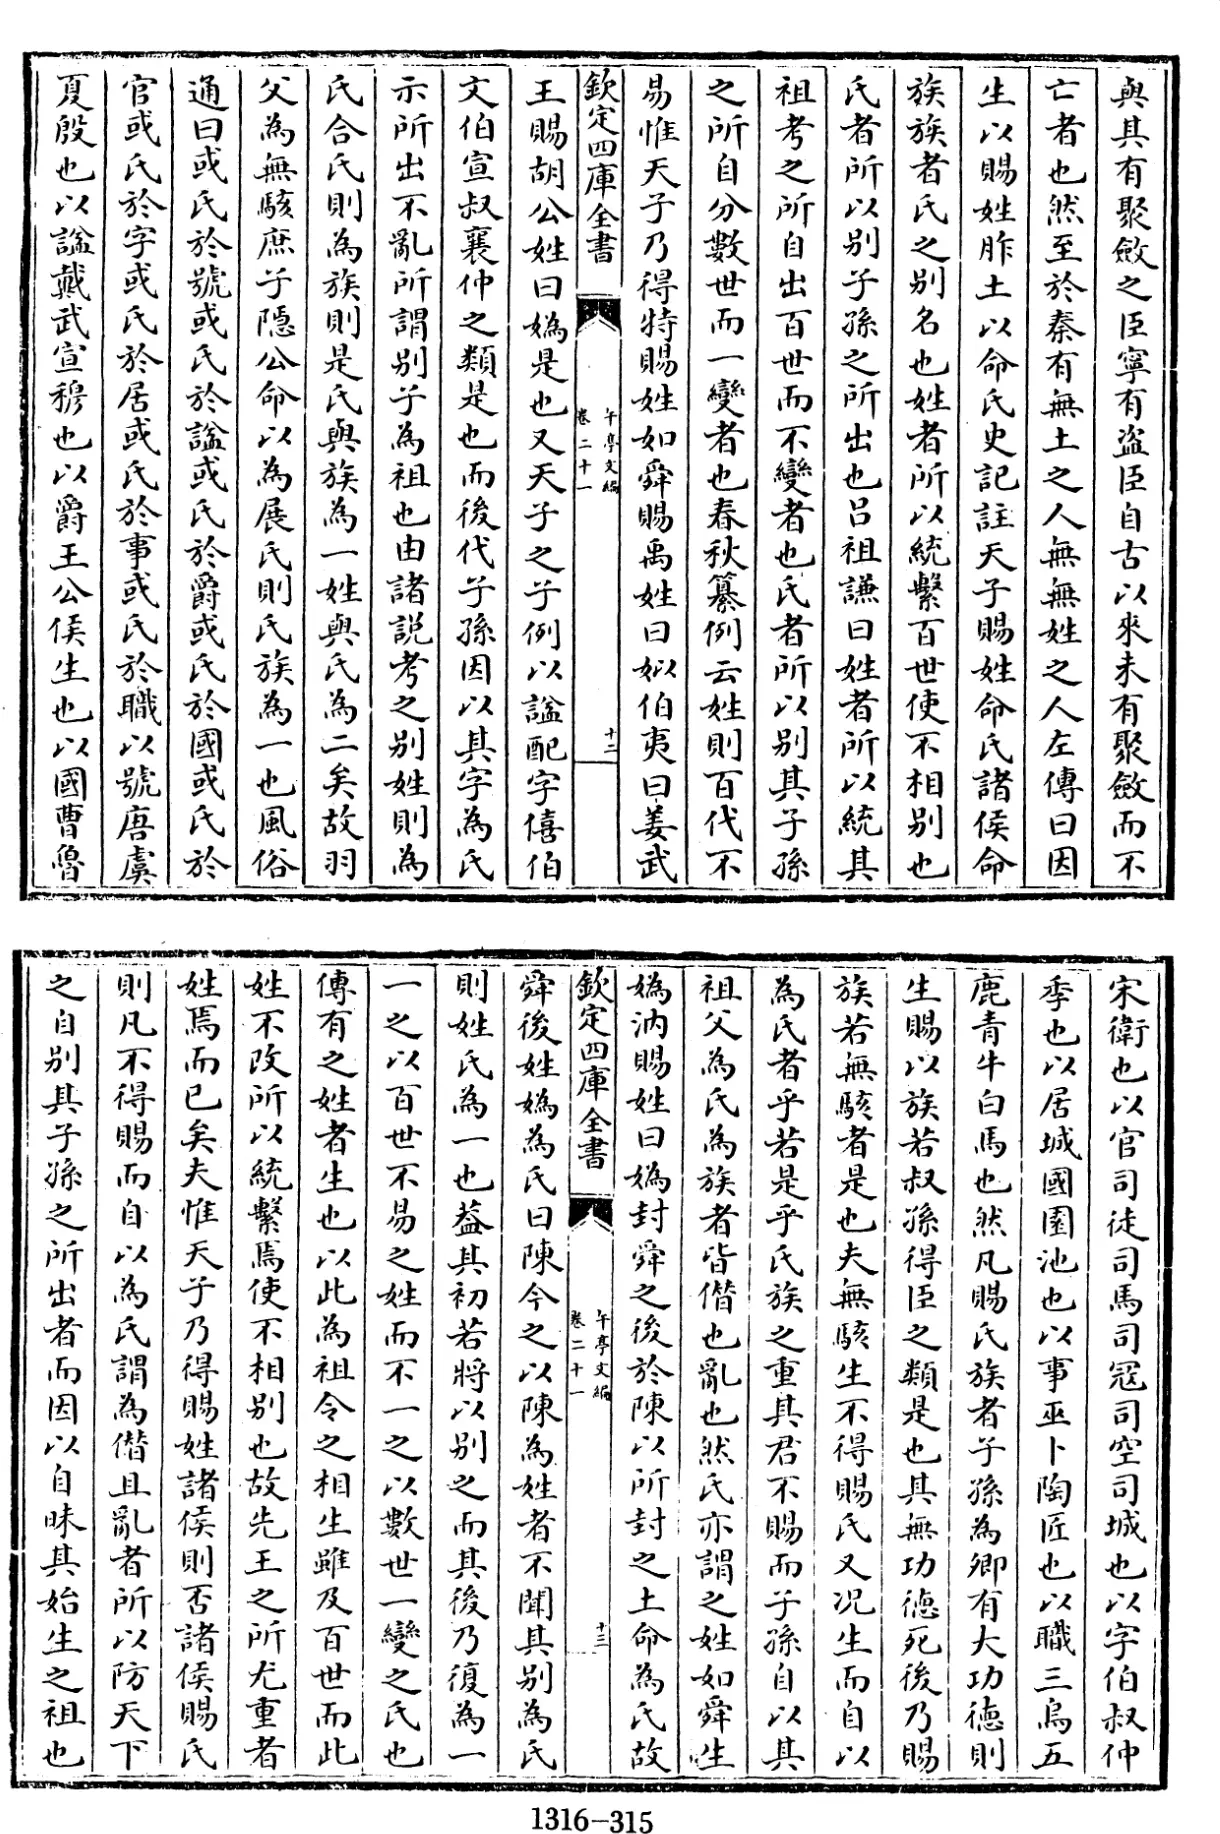 與其有聚斂之臣寧有盜臣自古以來未有聚斂而不
亡者也然至於秦有無土之人無無姓之人左傳曰因
生以賜姓胙土以命氏史記註天子賜姓命氏諸侯命
族族者氏之别名也姓者所以統繫百世使不相别也
氏者所以别子孫之所出也呂祖謙曰姓者所以統其
祖考之所自出百世而不變者也氏者所以别其子孫
之所自分數世而一變者也春秋纂例云姓則百代不
易惟天子乃得特賜姓如舜賜禹姓曰姒伯夷曰姜武
欽定四庫全書
午亭文編
卷二十一
十二
王賜胡公姓曰媯是也又天子之子例以諡配字僖伯
文伯宣叔襄仲之類是也而後代子孫因以其字為氏
示所出不亂所謂别子為祖也由諸説考之别姓則為
氏合氏則為族則是氏與族為一姓與氏為二矣故羽
父為無駭庶子隱公命以為展氏則氏族為一也風俗
通曰或氏於號或氏於諡或氏於爵或氏於國或氏於
官或氏於字或氏於居或氏於事或氏於職以號唐虞
夏殷也以諡戴武宣穆也以爵王公侯生也以國曹魯
宋衛也以官司徒司馬司冦司空司城也以字伯叔仲
季也以居城國園池也以事巫卜陶匠也以職三烏五
鹿青牛白馬也然凡賜氏族者子孫為卿有大功德則
生賜以族若叔孫得臣之類是也其無功德死後乃賜
族若無駭者是也夫無駭生不得賜氏又况生而自以
為氏者乎若是乎氏族之重其君不賜而子孫自以其
祖父為氏為族者皆僭也亂也然氏亦謂之姓如舜生
媯汭賜姓曰媯封舜之後於陳以所封之土命為氏故
欽定四庫全書
午亭文編
卷二十一
十三
舜後姓媯為氏曰陳今之以陳為姓者不聞其别為氏
則姓氏為一也葢其初若將以别之而其後乃復為一
一之以百世不易之姓而不一之以數世一變之氏也
傳有之姓者生也以此為祖令之相生雖及百世而此
姓不改所以統繫焉使不相别也故先王之所尤重者
姓焉而已矣夫惟天子乃得賜姓諸侯則否諸侯賜氏
則凡不得賜而自以為氏謂為僭且亂者所以防天下
之自别其子孫之所出者而因以自昧其始生之祖也
1316-315